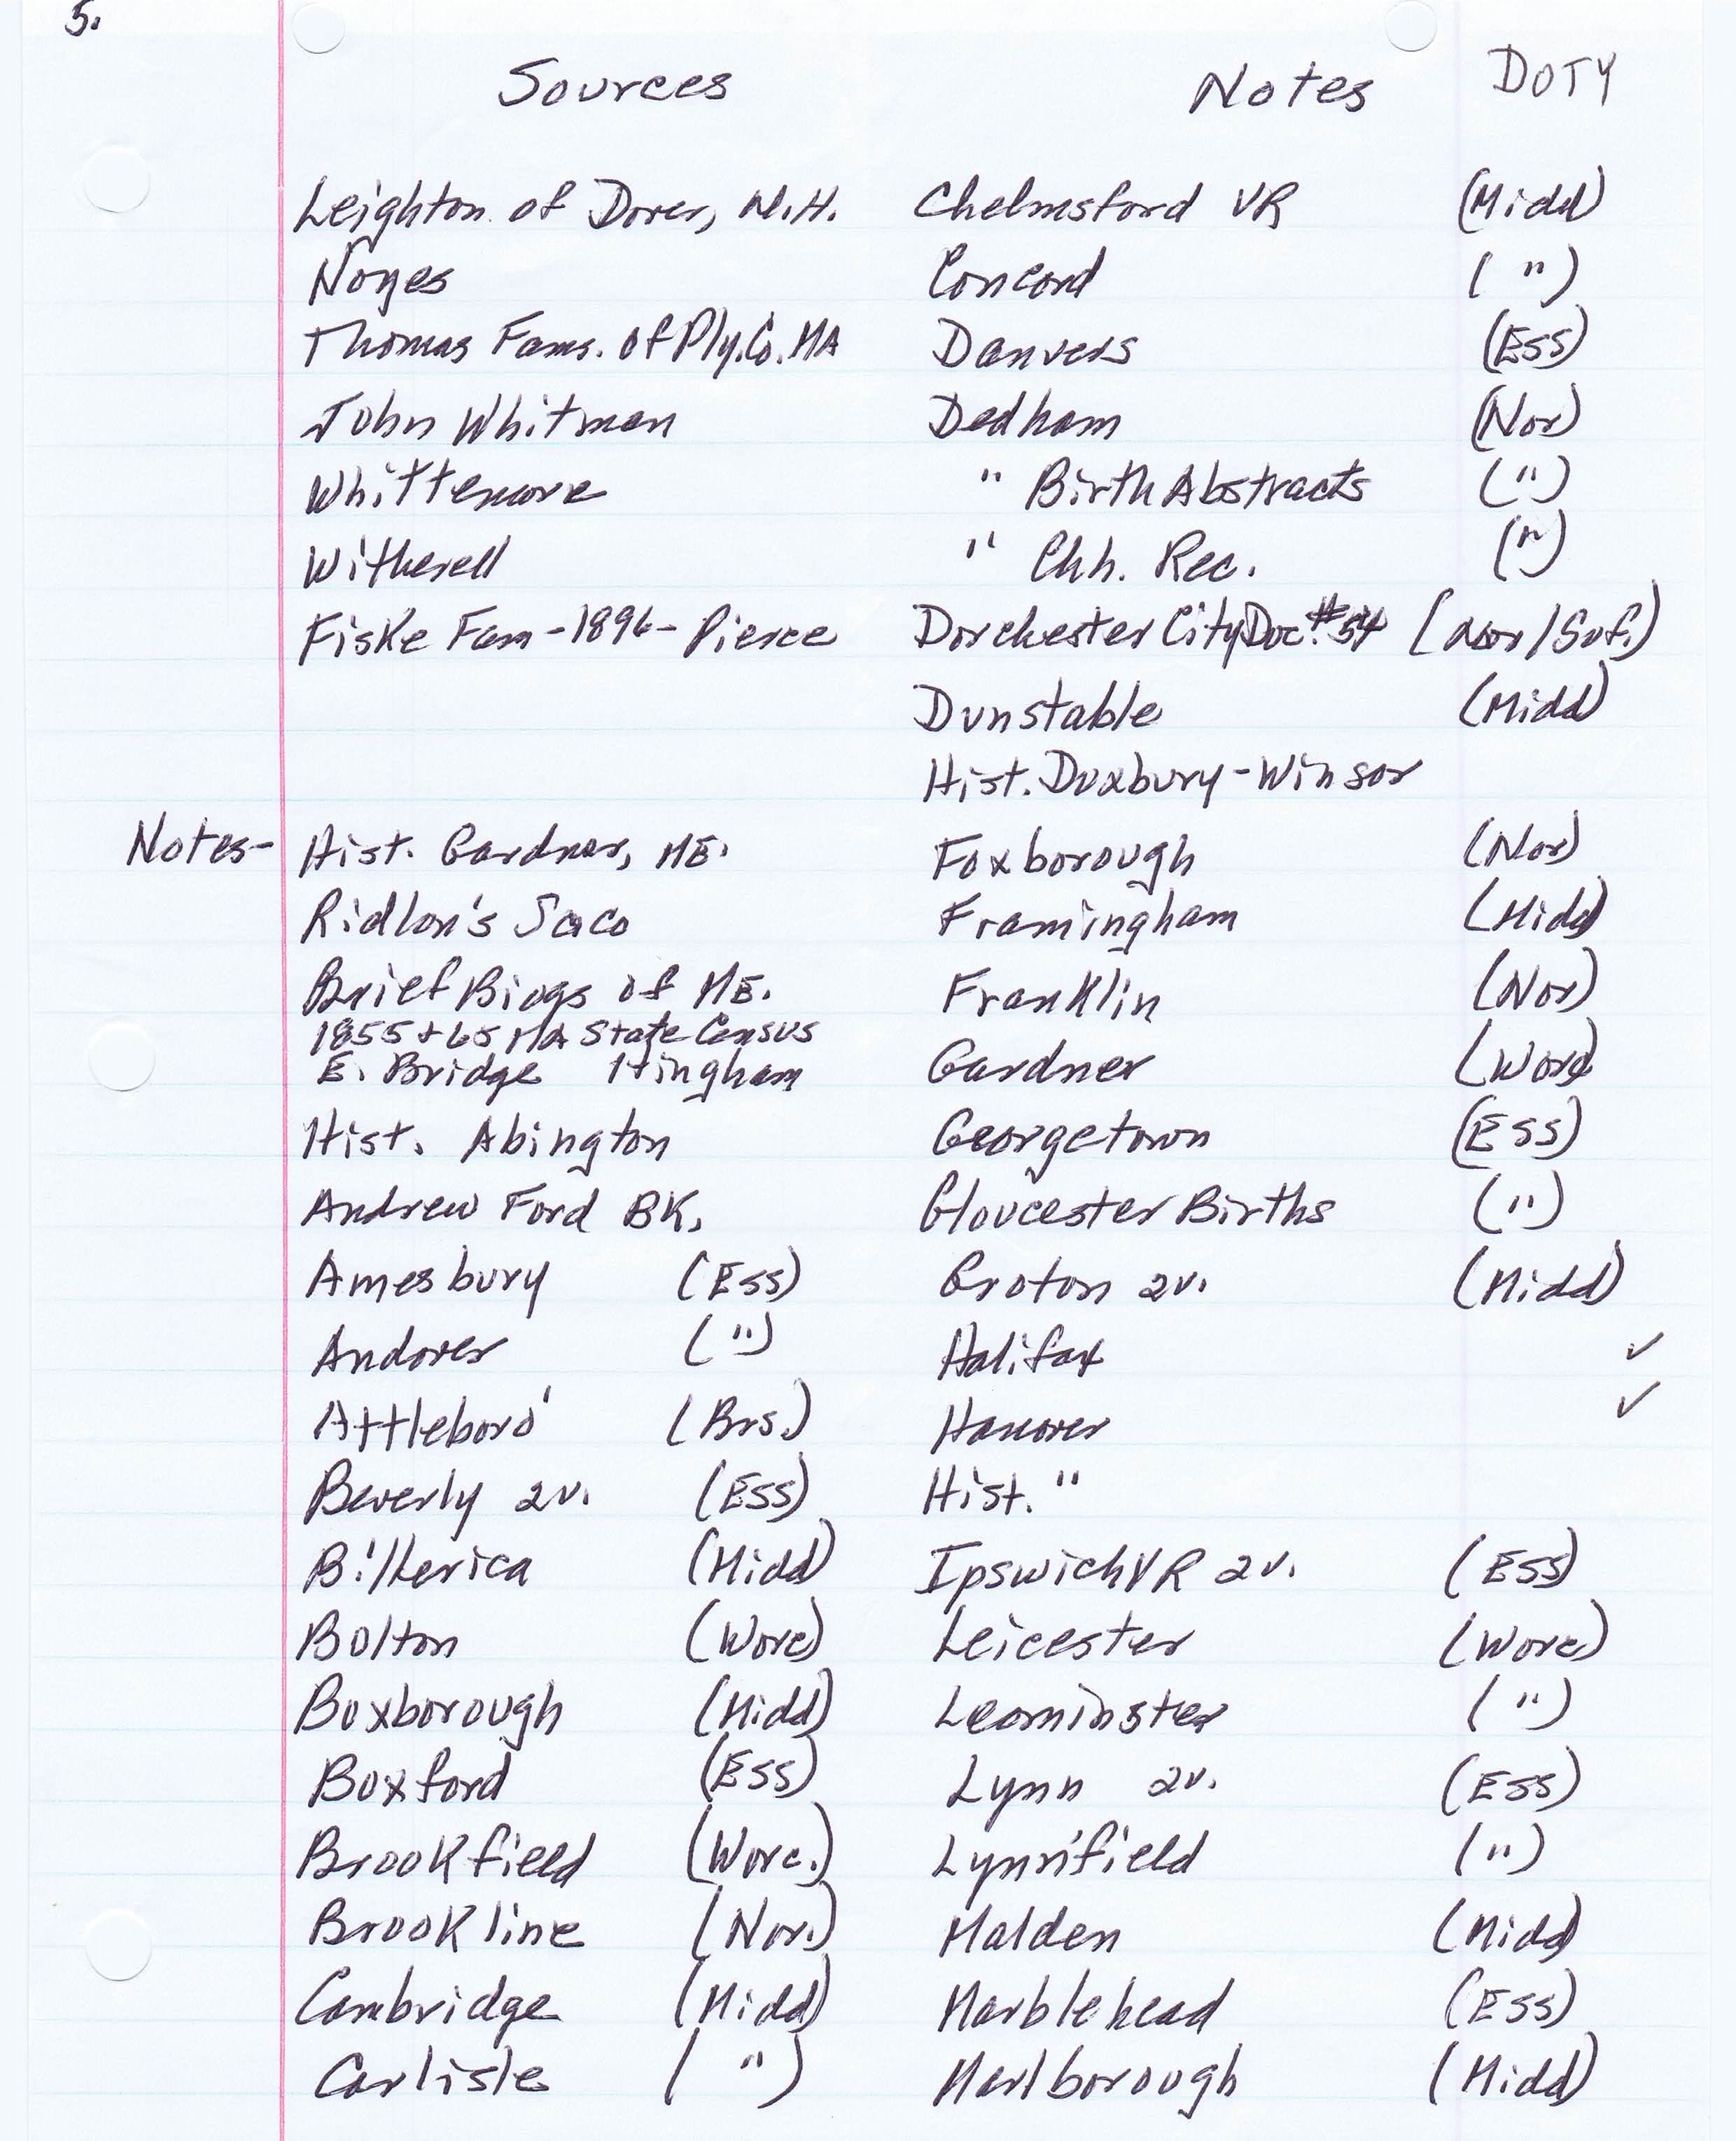 5.
Sources Notes DOTY
Leighton of Dover, N.H. Chelmsford VR (Midd)
Noyes Concord ( " )
Thomas Fams. of Ply. Co. MA Danvers (Ess)
John Whitman Dedham (Nor)
Whittemore " Birth Abstracts ( " )
Witherell " Chh. Rec. ( " )
Fiske Fam - 1896 - Pierce Dorchester City Doc. #54 (Nor/Suf.)
Dunstable (Midd)
Hist. Duxbury - Winsor
Notes- Hist. Gardner, ME. Foxborough (Nor)
Ridlon's Saco Framingham (Midd)
Brief Biogs of ME. Franklin (Nor)
1855 + 65 MA State Census
E. Bridge Hingham Gardner (Worc)
Hist. Abington Georgetown (Ess)
Andrew Ford BK. Gloucester Births ( " )
Amesbury (Ess) Groton 2v. (Midd)
Andover ( " ) Halifax ✓
Attleboro' (Brs.) Hanover ✓
Beverly 2v. (Ess) Hist. "
Billerica (Midd) Ipswich VR 2v. (Ess)
Bolton (Worc) Leicester (Worc)
Boxborough (Midd) Leominster ( " )
Boxford (Ess) Lynn 2v. (Ess)
Brookfield (Worc.) Lynnfield ( " )
Brookline (Nor.) Malden (Midd)
Cambridge (Midd) Marblehead (Ess)
Carlisle ( " ) Marlborough (Midd)